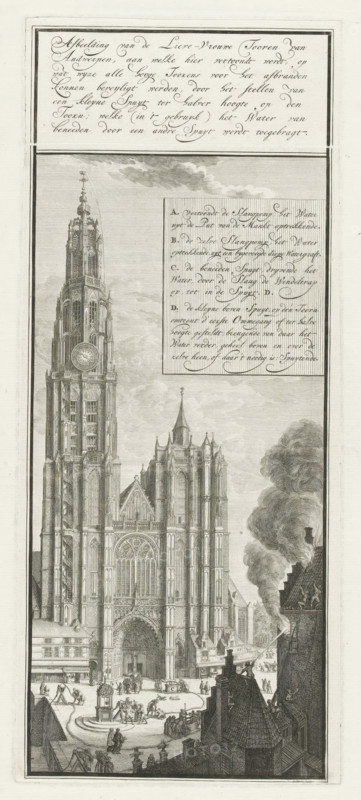 Afbeelding van de Lieve-Vrouwe Tooren van
Antwerpen, aan welke hier vertoondt werdt, op
wat wyze alle hooge Toorens voor het afbranden
konnen beveyligt werden, door het stellen van
een kleyne Spuyt ter halver hoogte op den
Toorn; welke (in 't gebruyk) het Water van
beneeden door een andre Spuyt werdt toegebragt.
A. vertoondt de Slangpomp het Water
uyt de Put van de Markt optrekkende.
B. de zelve Slangpomp het Water
optrekkende uyt een
C. de beneeden Spuyt dryvende het
Water door de Slang de Wendeltrap
op tot in de Spuyt D.
D. de kleyne boven Spuyt op den Toorn
omtrent d'eerste Ommegang of ter halver
hoogte gestelt, brengende van daar het
Water verder geheel boven en over de
zelve heen, of daar 't noodig is Spuytende.